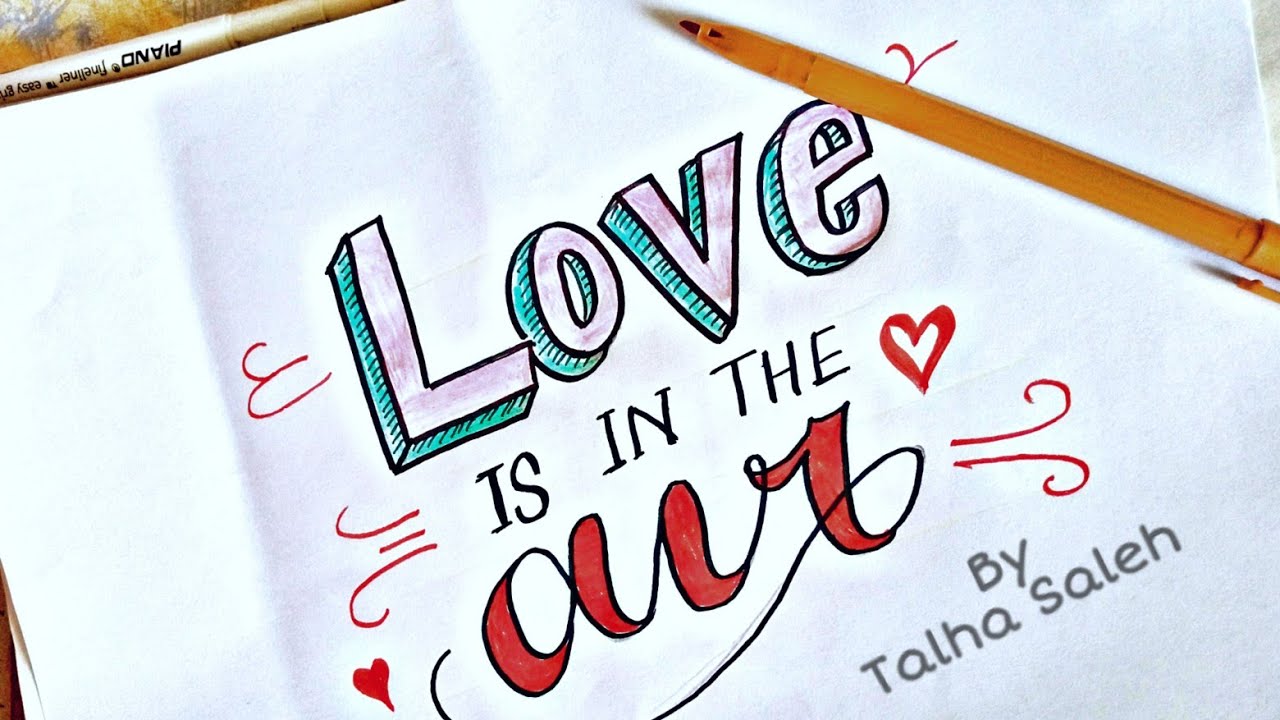 PIANO® fineliner™ easy gri
Love
IS IN THE
air
By
Talha Saleh